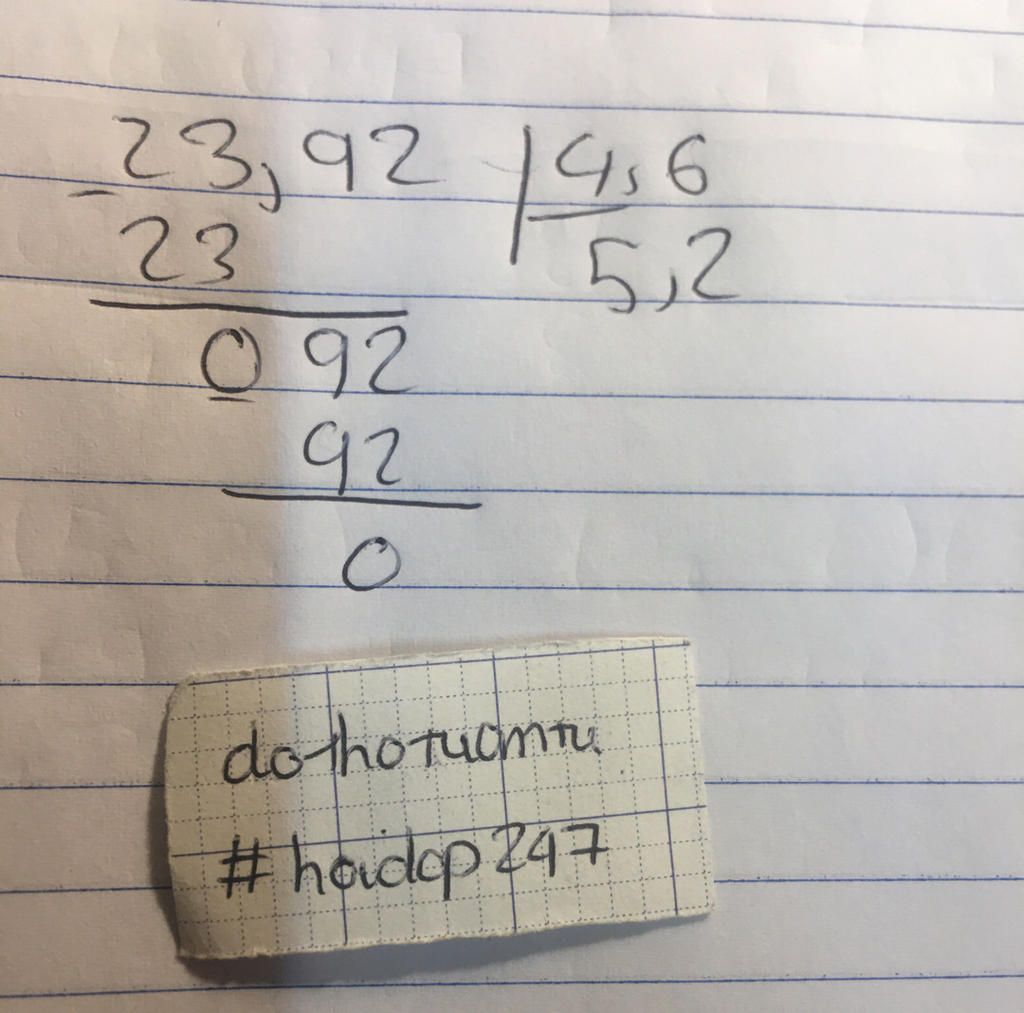 23,92 4,6
- 23 5,2
0 92
- 92
0
dothotucmtu.
#hoidap247